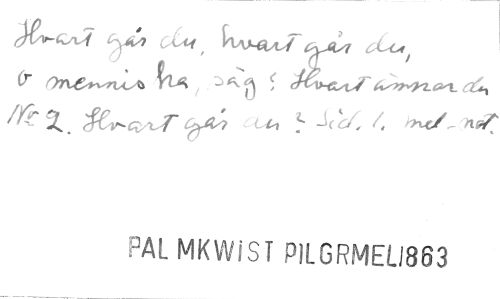 Hvart går du, hvart går du,
o menniska, säg? Hvart ämnar du
No 2. Hvart går du? Sid. 1. mel. not.
PALMKWiST PILGRMEL1863